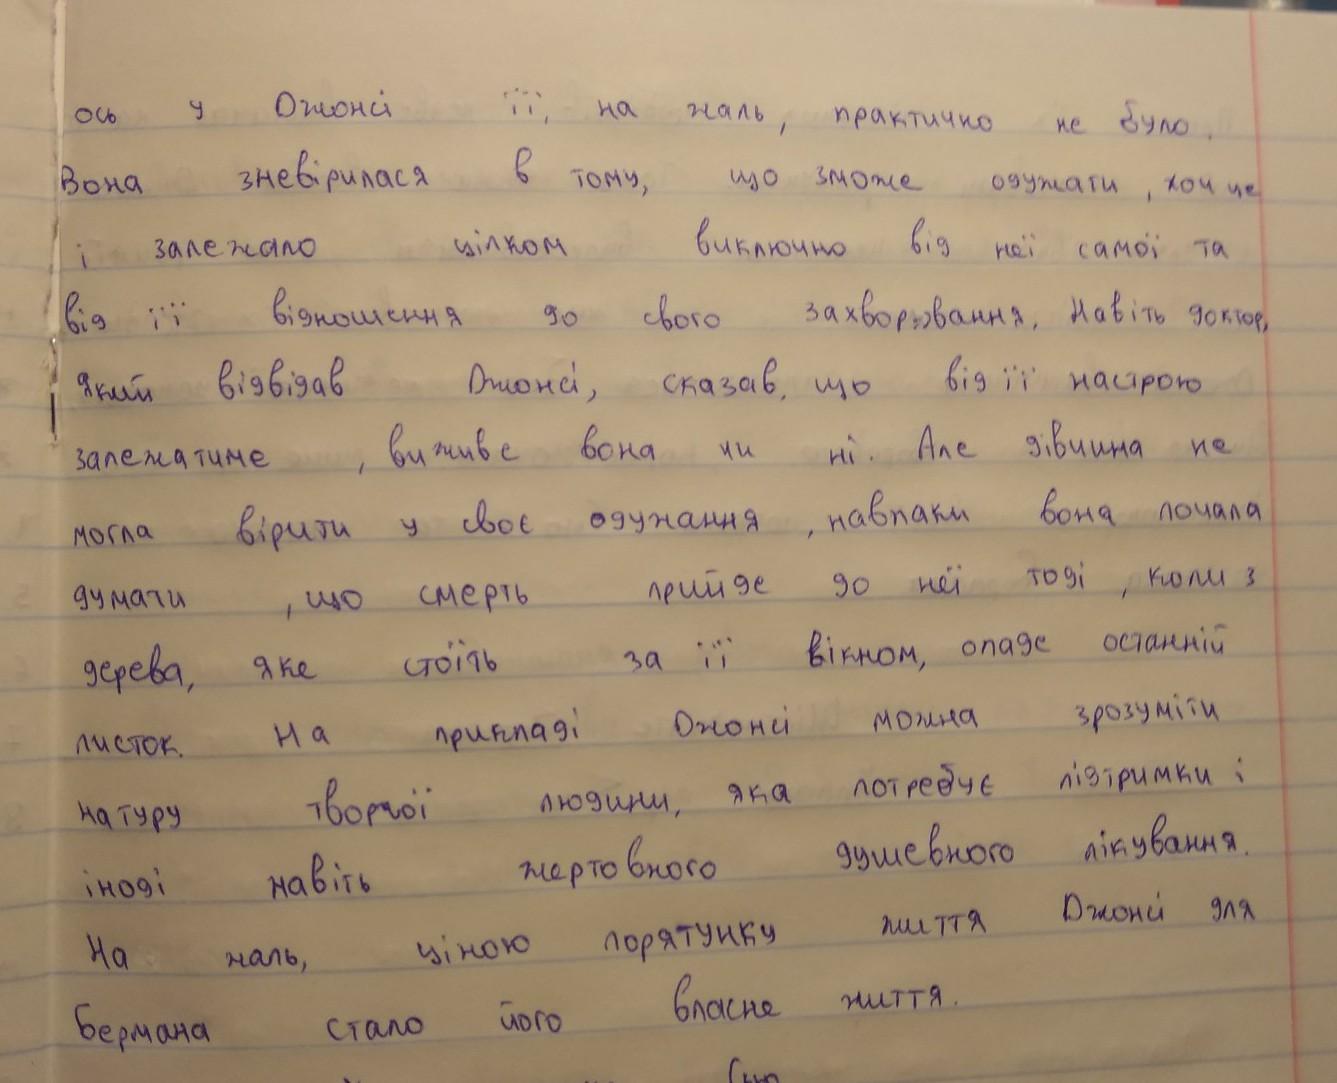 ось у Джонсі її, на жаль, практично не було.
Вона зневірилася в тому, що зможе одужати, хоч це
і залежало цілком виключно від неї самої та
від її відношення до свого захворювання. Навіть доктор,
який відвідав Джонсі, сказав, що від її настрою
залежатиме, виживе вона чи ні. Але дівчина не
могла вірити у своє одужання, навпаки вона почала
думати, що смерть прийде до неї тоді, коли з
дерева, яке стоїть за її вікном, опаде останній
листок. На прикладі Джонсі можна зрозуміти
натуру творчої людини, яка потребує підтримки і
іноді навіть жертовного душевного лікування.
На жаль, ціною порятунку життя Джонсі для
Бермана стало його власне життя.